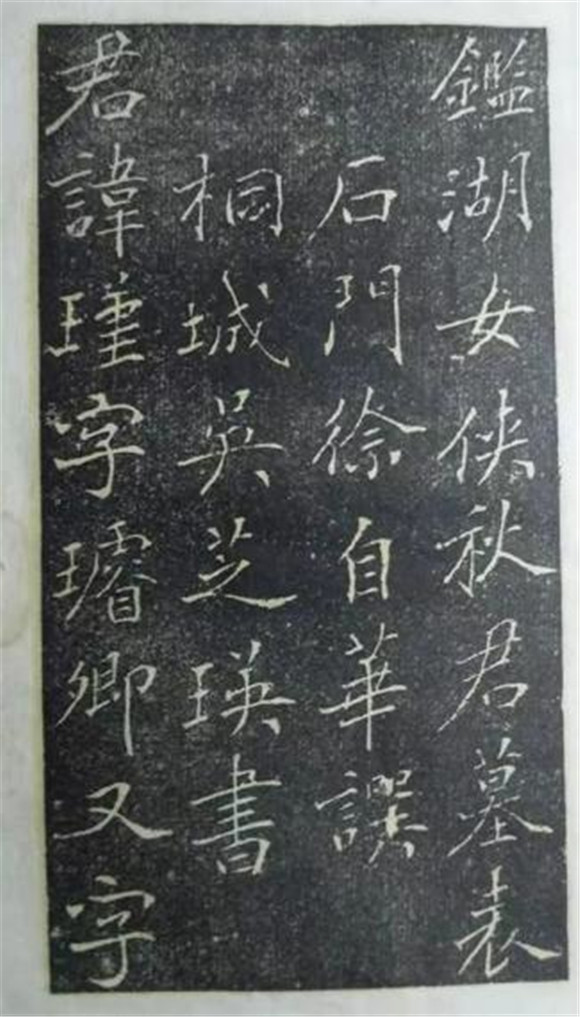 鑑湖女俠秋君墓表
石門徐自華譔
桐城吳芝瑛書
君諱瑾字璿卿又字